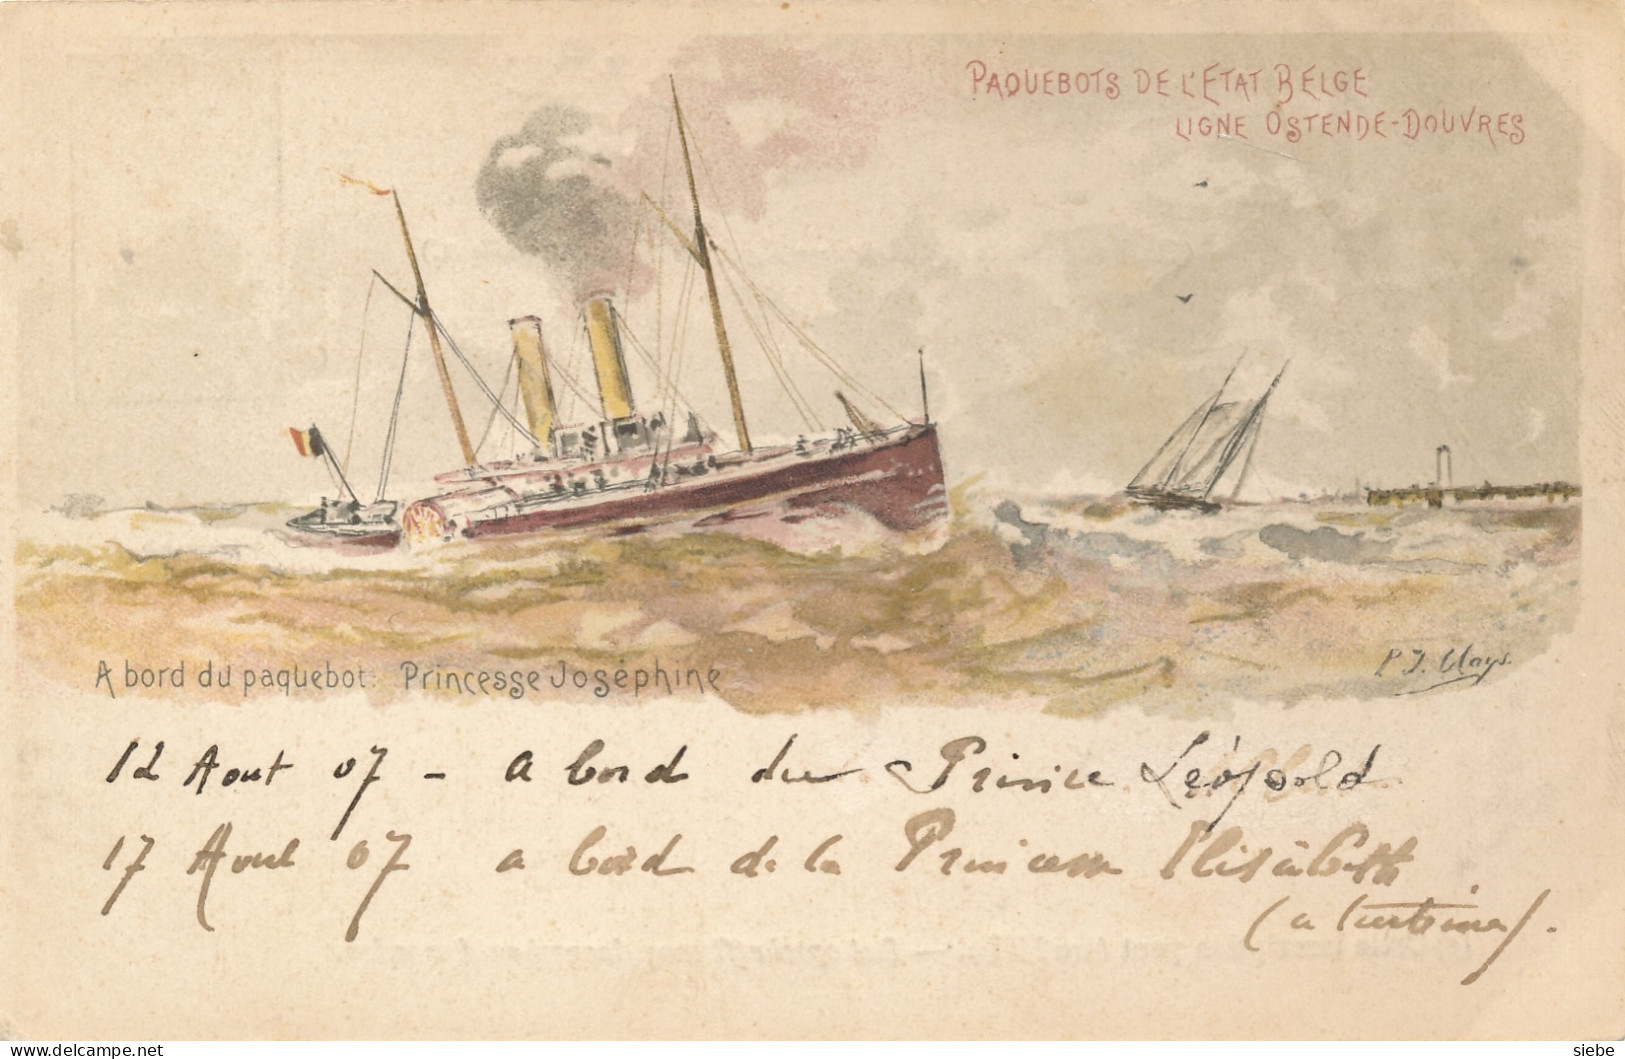 PAQUEBOTS DE L'ETAT BELGE
LIGNE OSTENDE-DOUVRES
A bord du paquebot: Princesse Joséphine
P.J. Clays.
12 Aout 07 - a bord du Prince Léopold
17 Aout 07 a bord de la Princesse Elisabeth
(a turbines).
Delcampe.net
siebe